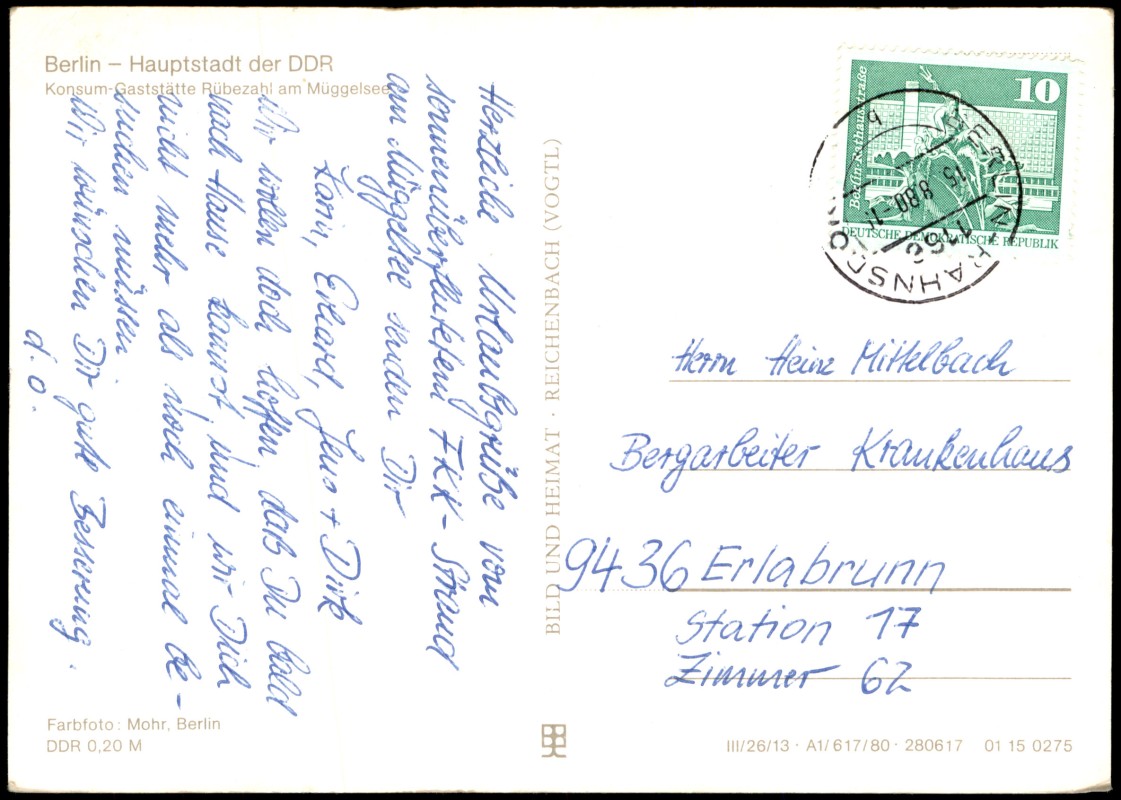 Berlin – Hauptstadt der DDR
Konsum-Gaststätte Rübezahl am Müggelsee
Herzliche Urlaubsgrüße vom
sonnenüberfluteten FKK-Strand
am Müggelsee senden Dir
Karin, Erhard, Jens + Dirk
Wir wollen doch hoffen, daß Du bald
nach Hause kannst und wir Dich
nicht mehr als noch einmal be-
suchen müssen
Wir wünschen Dir gute Besserung.
d. O.
Farbfoto: Mohr, Berlin
DDR 0,20 M
BILD UND HEIMAT · REICHENBACH (VOGTL)
10
Berlin-Rathausstraße
DEUTSCHE DEMOKRATISCHE REPUBLIK
BERLIN-RAHNSDORF
15.8.80-1
1162
b
Herrn Heinz Mittelbach
Bergarbeiter Krankenhaus
9436 Erlabrunn
Station 17
Zimmer 62
III/26/13 · A1/617/80 · 280617 01 15 0275